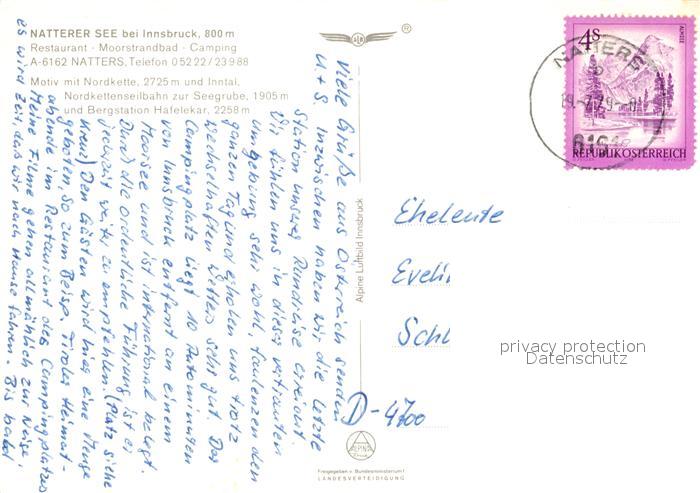 NATTERER SEE bei Innsbruck, 800 m
Restaurant · Moorstrandbad · Camping
A-6162 NATTERS, Telefon 0 52 22 / 2 39 88
Motiv mit Nordkette, 2725 m und Inntal,
Nordkettenseilbahn zur Seegrube, 1905 m
und Bergstation Hafelekar, 2258 m
Viele Grüße aus Österreich senden
U + S. Inzwischen haben wir die letzte
Station unserer Rundreise erreicht
Wir fühlen uns in dieser vertrauten
Umgebung sehr wohl, faulenzen den
ganzen Tag und erholen uns trotz
wechselhaften Wetters sehr gut. Der
Campingplatz liegt 10 Autominuten
von Innsbruck entfernt an einem
Moorsee und ist international belegt.
Durch die ordentliche Führung ist er
jederzeit weiter zu empfehlen. (Platz siehe
Kreuz) Den Gästen wird hier eine Menge
geboten, so zum Beisp. Tiroler Heimat-
abende im Restaurant des Campingplatzes
Meine Filme gehen allmählich zur Neige.
es wird Zeit, daß wir nach Hause fahren. Bis bald
Alpine Luftbild Innsbruck
®
4 S
ALMSEE
REPUBLIK ÖSTERREICH
NATTERS
6161
Eheleute
Eveli
Schl
D-4700
privacy protection
Datenschutz
ALPINE
Freigegeben v. Bundesministerium f.
LANDESVERTEIDIGUNG